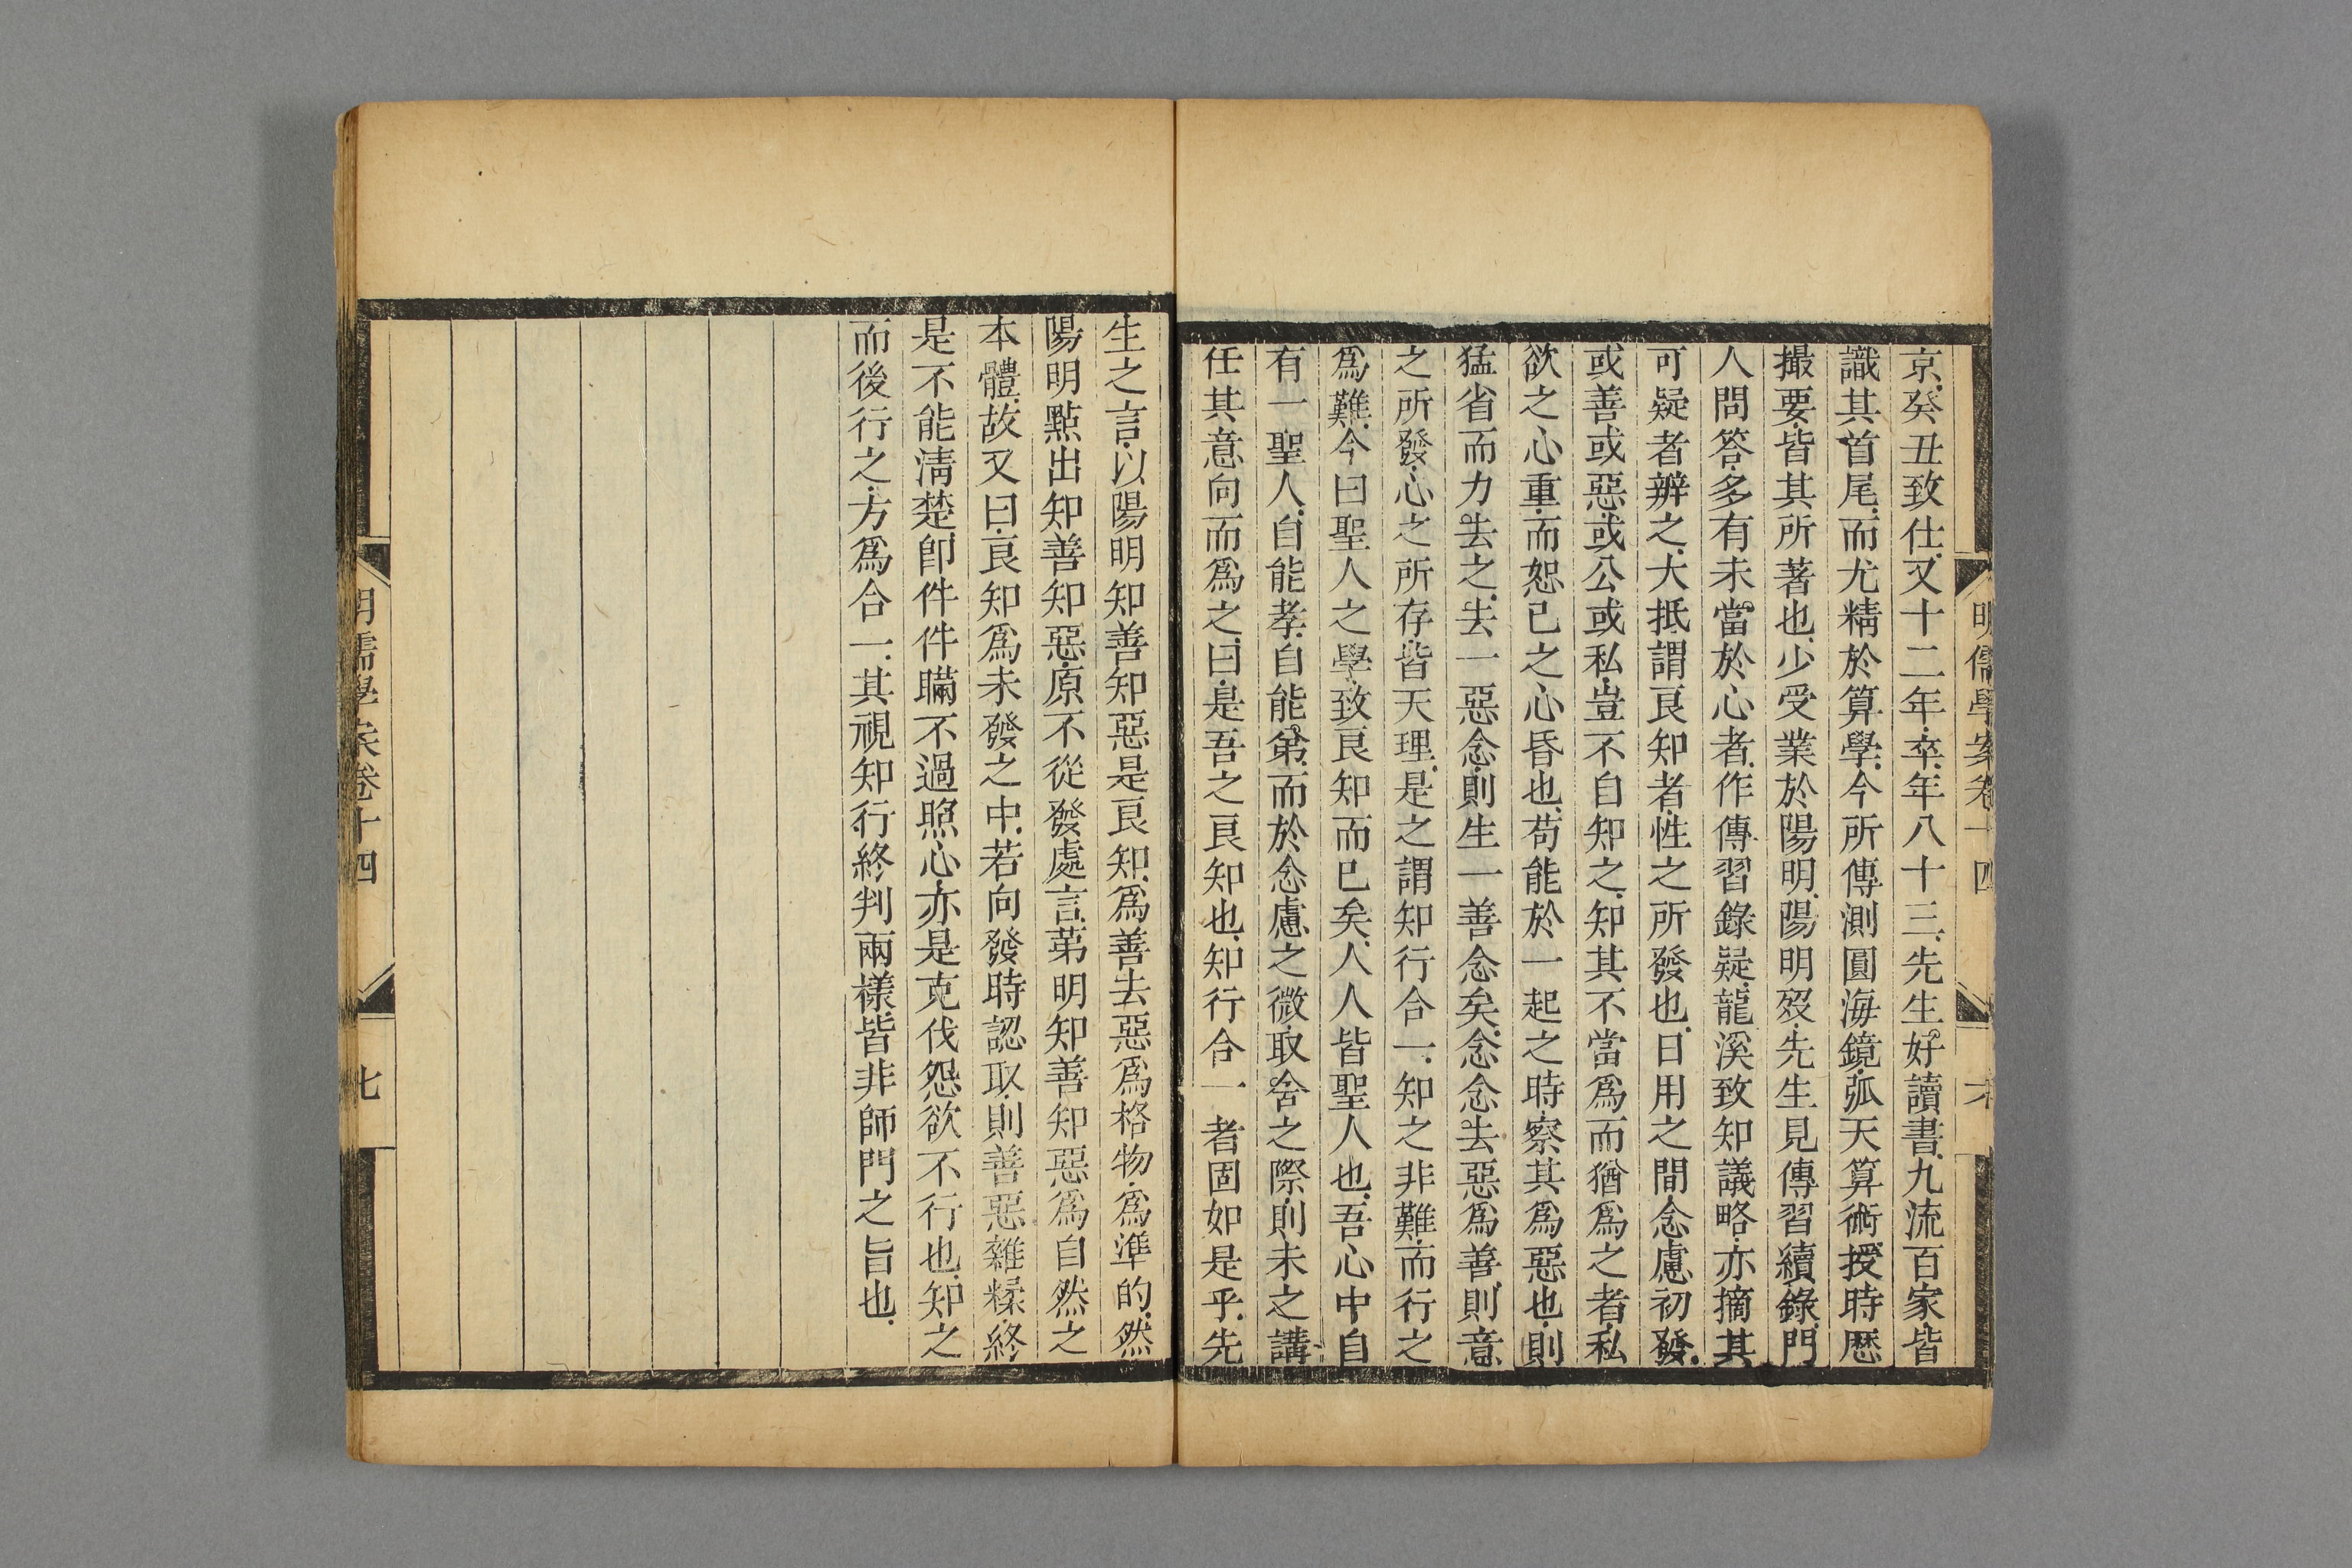 明儒學案卷十四
六
京癸丑致仕又十二年卒年八十三先生好讀書九流百家皆
識其首尾而尤精於算學今所傳測圓海鏡弧天算術授時歷
撮要皆其所著也少受業於陽明陽明歿先生見傳習續錄門
人問答多有未當於心者作傳習錄疑龍溪致知議略亦摘其
可疑者辨之大抵謂良知者性之所發也日用之間念慮初發
或善或惡或公或私豈不自知之知其不當為而猶為之者私
欲之心重而恕己之心昏也苟能於一起之時察其為惡也則
猛省而力去之去一惡念則生一善念矣念念去惡為善則意
之所發心之所存皆天理是之謂知行合一知之非難而行之
為難今曰聖人之學致良知而已矣人人皆聖人也吾心中自
有一聖人自能孝自能弟而於念慮之微取舍之際則未之講
任其意向而為之曰是吾之良知也知行合一者固如是乎先
生之言以陽明知善知惡是良知為善去惡為格物為準的然
陽明點出知善知惡原不從發處言第明知善知惡為自然之
本體故又曰良知為未發之中若向發時認取則善惡雜糅終
是不能淸楚卽件件瞞不過照心亦是克伐怨欲不行也知之
而後行之方為合一其視知行終判兩樣皆非師門之旨也
明儒學案卷十四
七